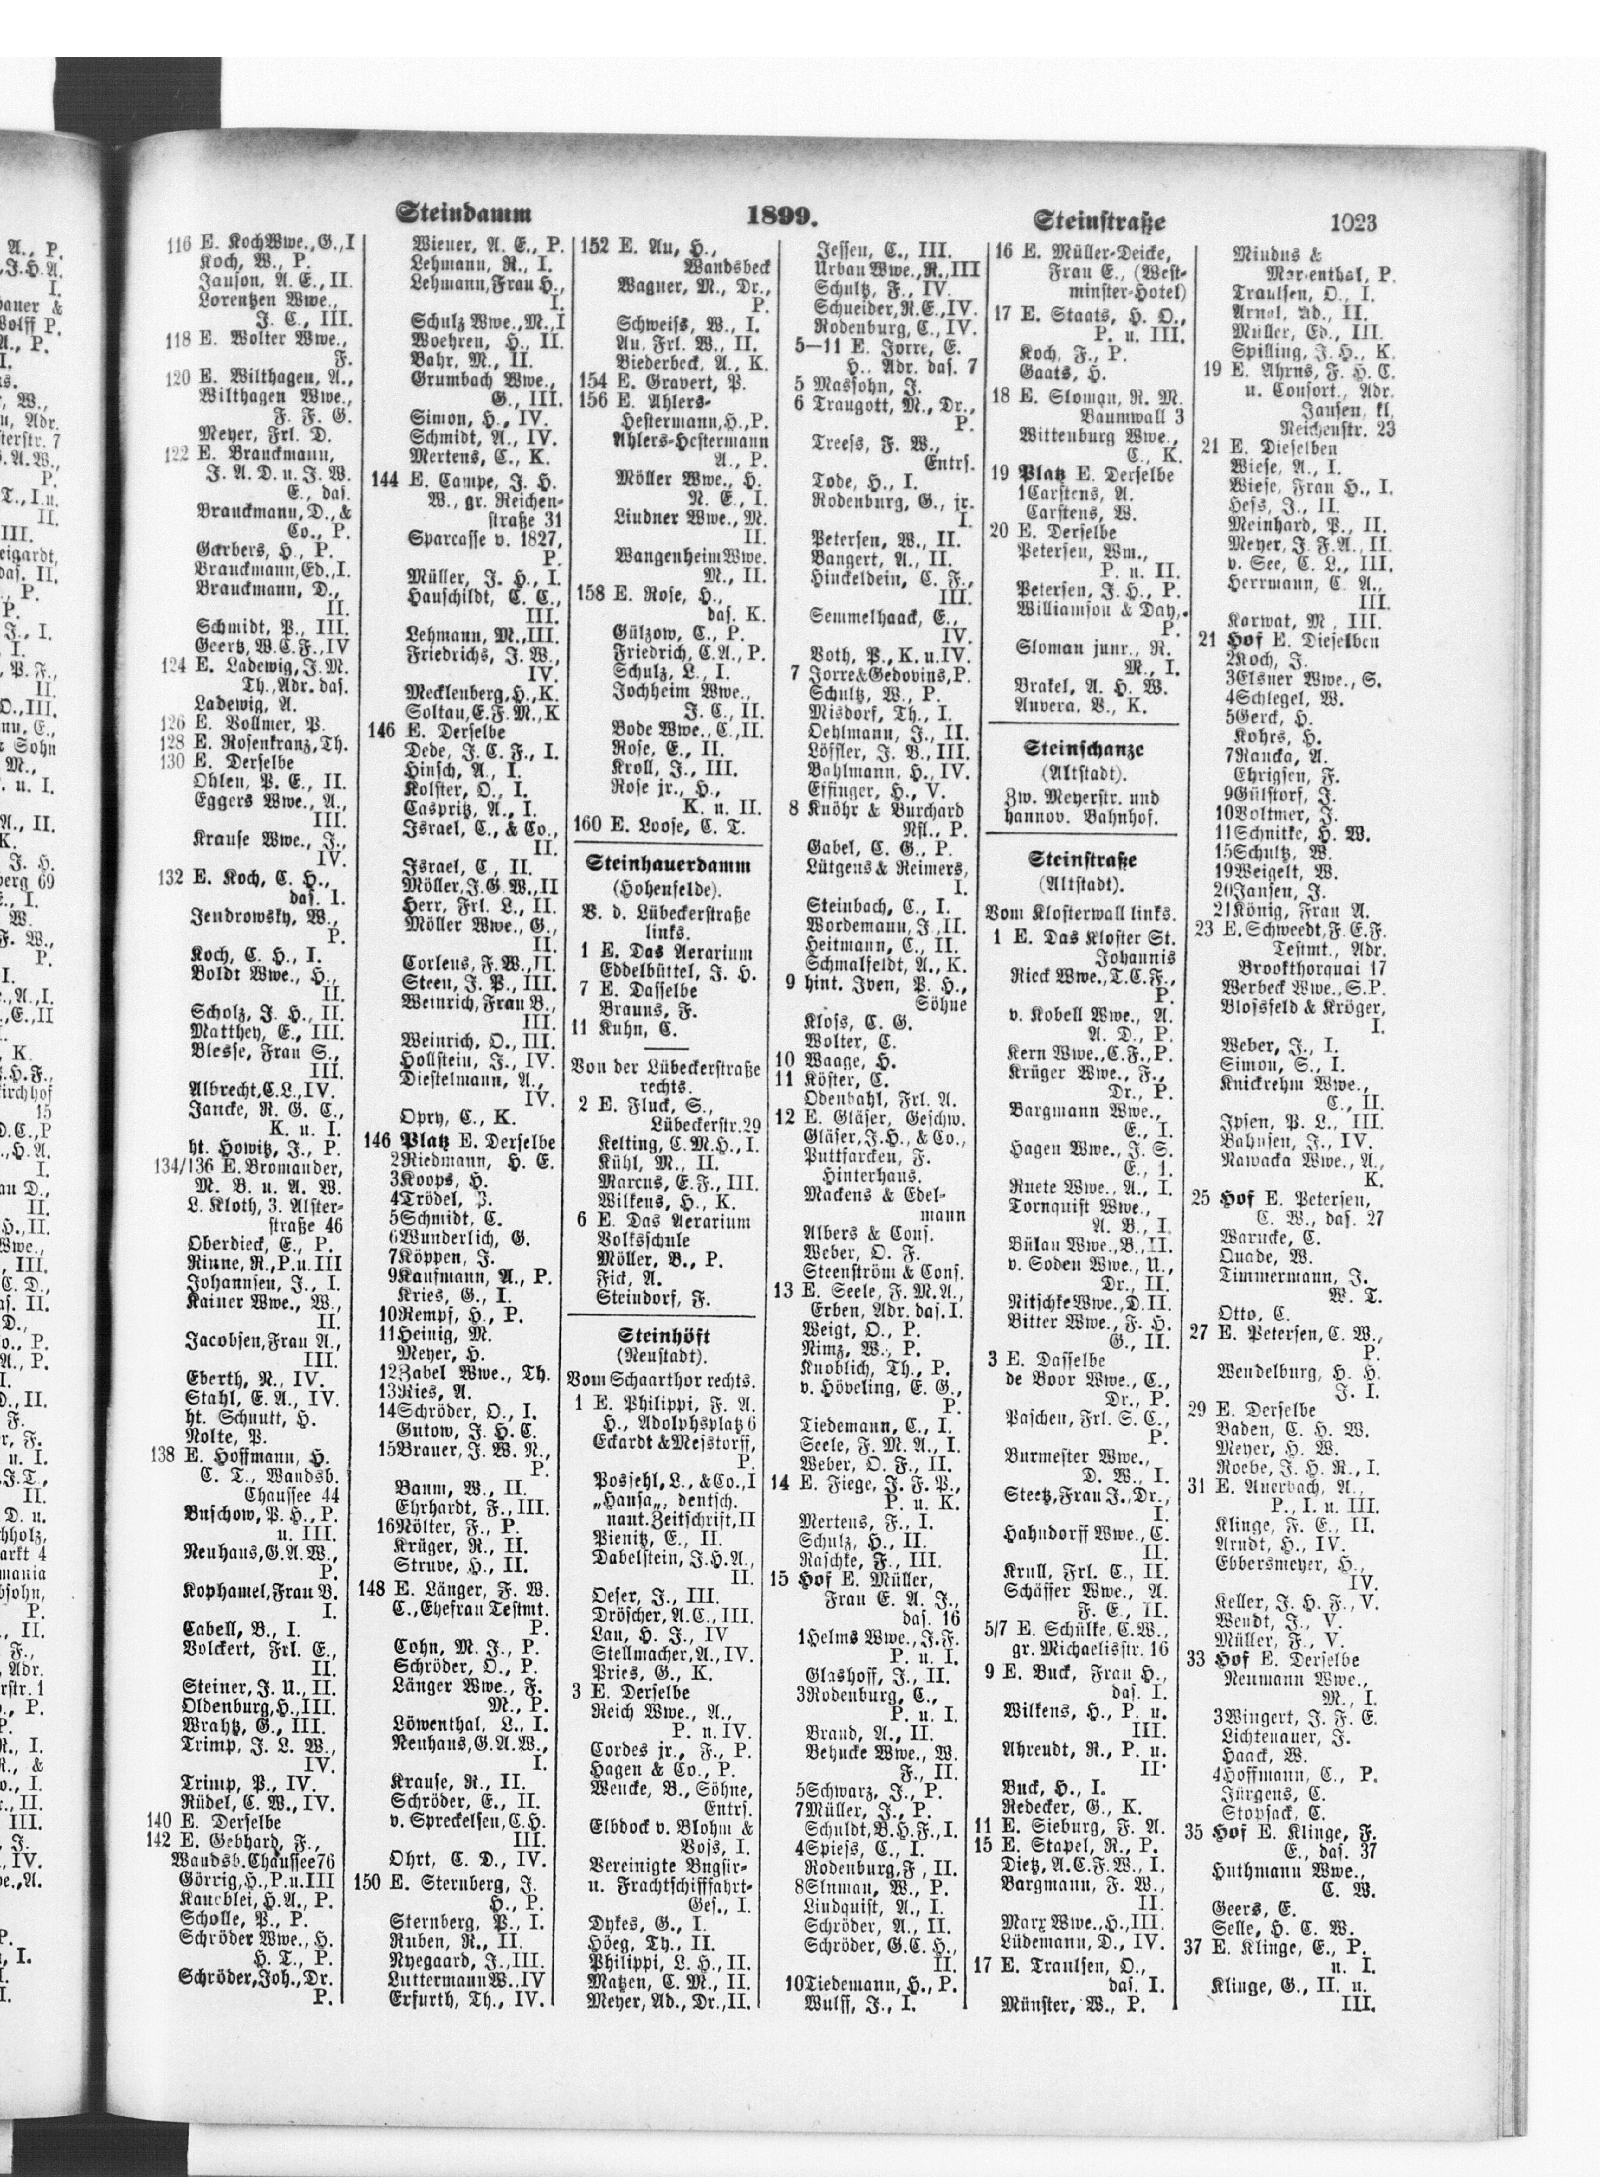 Steindamm
1899.
Steinstraße
1023
116 E. Koch Wwe., G., I
Koch, W., P.
Janson, A. E., II.
Lorentzen Wwe.,
J. C., III.
118 E. Wolter Wwe.,
F.
120 E. Wilthagen, A.,
Wilthagen Wwe.,
F. F. G.
Meyer, Frl. D.
122 E. Brauckmann,
J. A. D. u. J. W.
E., das.
Brauckmann, D., &
Co., P.
Garbers, H., P.
Brauckmann, Ed., I.
Brauckmann, D.,
II.
Schmidt, P., III.
Geertz, W. C. F., IV
124 E. Ladewig, J. M.
Th., Adr. das.
Ladewig, A.
126 E. Vollmer, P.
128 E. Rosenkranz, Th.
130 E. Derselbe
Ohlen, P. E., II.
Eggers Wwe., A.,
III.
Krause Wwe., J.,
IV.
132 E. Koch, C. H.,
das. I.
Jendrowsky, W.,
P.
Koch, C. H., I.
Boldt Wwe., H.,
II.
Scholz, J. H., II.
Matthey, E., III.
Blesse, Frau S.,
III.
Albrecht, C. L., IV.
Jancke, R. G. C.,
K. u. I.
ht. Howitz, J., P.
134/136 E. Bromander,
M. B. u. A. W.
L. Kloth, 3. Alster-
straße 46
Oberdieck, E., P.
Rinne, R., P. u. III
Johannsen, J., I.
Kainer Wwe., W.,
II.
Jacobsen, Frau A.,
III.
Eberth, R., IV.
Stahl, E. A., IV.
ht. Schnutt, H.
Nolte, P.
138 E. Hoffmann, H.
C. T., Wandsb.
Chaussee 44
Buschow, P. H., P.
u. III.
Neuhaus, G. A. W.,
P.
Kophamel, Frau V.
I.
Cabell, B., I.
Volckert, Frl. E.,
II.
Steiner, J. U., II.
Oldenburg, H., III.
Wrahtz, G., III.
Trimp, J. L. W.,
IV.
Trimp, P., IV.
Rüdel, C. W., IV.
140 E. Derselbe
142 E. Gebhard, F.,
Wandsb. Chaussee 76
Görrig, H., P. u. III
Kaneblei, H. A., P.
Scholle, P., P.
Schröder Wwe., H.
H. T., P.
Schröder, Joh., Dr.
P.
Wiener, A. E., P.
Lehmann, R., I.
Lehmann, Frau H.,
I.
Schulz Wwe., M., I
Woehren, H., II.
Bahr, M., II.
Grumbach Wwe.,
G., III.
Simon, H., IV.
Schmidt, A., IV.
Mertens, C., K.
144 E. Campe, J. H.
W., gr. Reichen-
straße 31
Sparcasse v. 1827,
P.
Müller, J. H., I.
Hauschildt, C. C.,
III.
Lehmann, M., III.
Friedrichs, J. W.,
IV.
Mecklenberg, H., K.
Soltau, E. F. M., K
146 E. Derselbe
Dede, J. C. F., I.
Hinsch, A., I.
Kolster, O., I.
Caspritz, A., I.
Israel, C., & Co.,
II.
Israel, C., II.
Möller, J. G. W., II
Herr, Frl. L., II.
Möller Wwe., G.,
II.
Corleus, F. W., II.
Steen, J. P., III.
Weinrich, Frau B.,
III.
Weinrich, O., III.
Hollstein, J., IV.
Diestelmann, A.,
IV.
Opry, C., K.
146 Platz E. Derselbe
2 Riedmann, H. E.
3 Koops, H.
4 Trödel,
5 Schmidt, C.
6 Wunderlich, G.
7 Köppen, J.
9 Kaufmann, A., P.
Kries, G., I.
10 Rempf, H., P.
11 Heinig, M.
Meyer, H.
12 Zabel Wwe., Th.
13 Ries, A.
14 Schröder, O., I.
Gutow, J. H. C.
15 Brauer, J. W. N.,
P.
Baum, W., II.
Ehrhardt, F., III.
16 Nölter, F., P.
Krüger, R., II.
Struve, H., II.
148 E. Länger, F. W.
C., Ehefrau Testmt.
P.
Cohn, M. J., P.
Schröder, O., P.
Länger Wwe., F.
M., P.
Löwenthal, L., I.
Neuhaus, G. A. W.,
I.
Krause, R., II.
Schröder, E., II.
v. Spreckelsen, C. H.
III.
Ohrt, C. D., IV.
150 E. Sternberg, J.
H., P.
Sternberg, P., I.
Ruben, R., II.
Nyegaard, J., III.
Luttermann W., IV
Erfurth, Th., IV.
152 E. Au, H.,
Wandsbeck
Wagner, M., Dr.,
P.
Schweiss, W., I.
Au, Frl. W., II.
Biederbeck, A., K.
154 E. Gravert, P.
156 E. Ahlers-
Hestermann, H., P.
Ahlers-Hestermann
A., P.
Möller Wwe., H.
N. E., I.
Lindner Wwe., M.
II.
Wangenheim Wwe.
M., II.
158 E. Rose, H.,
das. K.
Gülzow, C., P.
Friedrich, C. A., P.
Schulz, L., I.
Jochheim Wwe.,
J. C., II.
Bode Wwe., C., II.
Rose, E., II.
Kroll, J., III.
Rose jr., H.,
K. u. II.
160 E. Loose, C. T.
Steinhauerdamm
(Hohenfelde).
V. d. Lübeckerstraße
links.
1 E. Das Aerarium
Eddelbüttel, J. H.
7 E. Dasselbe
Brauns, F.
11 Kuhn, C.
Von der Lübeckerstraße
rechts.
2 E. Fluck, S.,
Lübeckerstr. 29
Kelting, C. M. H., I.
Kühl, M., II.
Marcus, E. F., III.
Wilkens, H., K.
6 E. Das Aerarium
Volksschule
Möller, B., P.
Fick, A.
Steindorf, F.
Steinhöft
(Neustadt).
Vom Schaarthor rechts.
1 E. Philippi, F. A.
H., Adolphsplatz 6
Eckardt & Messtorff,
P.
Possehl, L., & Co., I
„Hansa„, deutsch.
naut. Zeitschrift, II
Pienitz, E., II.
Dabelstein, J. H. A.,
II.
Oeser, J., III.
Dröscher, A. C., III.
Lau, H. J., IV
Stellmacher, A., IV.
Pries, G., K.
3 E. Derselbe
Reich Wwe., A.,
P. u. IV.
Cordes jr., F., P.
Hagen & Co., P.
Wencke, B., Söhne,
Entrs.
Elbdock v. Blohm &
Voss, I.
Vereinigte Bugsir-
u. Frachtschifffahrt-
Ges., I.
Dykes, G., I.
Höeg, Th., II.
Philippi, L. H., II.
Matzen, C. M., II.
Meyer, Ad., Dr., II.
Jessen, C., III.
Urban Wwe., R., III
Schultz, F., IV.
Schneider, R. E., IV.
Rodenburg, C., IV.
5—11 E. Jorre, E.
H., Adr. das. 7
5 Massohn, J.
6 Traugott, M., Dr.,
P.
Treess, F. W.,
Entrs.
Tode, H., I.
Rodenburg, G., jr.
I.
Petersen, W., II.
Bangert, A., II.
Hinckeldein, C. F.,
III.
Semmelhaack, E.,
IV.
Voth, P., K. u. IV.
7 Jorre & Gedovins, P.
Schultz, W., P.
Misdorf, Th., I.
Oehlmann, J., II.
Löffler, J. B., III.
Bahlmann, H., IV.
Effinger, H., V.
8 Knöhr & Burchard
Nfl., P.
Gabel, C. G., P.
Lütgens & Reimers,
I.
Steinbach, C., I.
Wordemann, J., II.
Heitmann, C., II.
Schmalfeldt, A., K.
9 hint. Iven, P. H.,
Söhne
Kloss, C. G.
Wolter, C.
10 Waage, H.
11 Köster, C.
Odenbahl, Frl. A.
12 E. Gläser, Geschw.
Gläser, J. H., & Co.,
Puttfarcken, F.
Hinterhaus.
Mackens & Edel-
mann
Albers & Cons.
Weber, O. F.
Steenström & Cons.
13 E. Seele, F. M. A.,
Erben, Adr. das. I.
Weigt, O., P.
Nimz, W., P.
Knoblich, Th., P.
v. Höveling, E. G.,
P.
Tiedemann, C., I.
Seele, F. M. A., I.
Weber, O. F., II.
14 E. Fiege, J. F. P.,
P. u. K.
Mertens, F., I.
Schulz, H., II.
Raschke, F., III.
15 Hof E. Müller,
Frau E. A. J.,
das. 16
1 Helms Wwe., J. F.
P. u. I.
Glashoff, J., II.
3 Rodenburg, C.,
P. u. I.
Brand, A., II.
Behncke Wwe., W.
F., II.
5 Schwarz, J., P.
7 Müller, J., P.
Schuldt, B. H. F., I.
4 Spiess, C., I.
Rodenburg, F, II.
8 Slnman, W., P.
Lindquist, A., I.
Schröder, A., II.
Schröder, G. C. H.,
II.
10 Tiedemann, H., P.
Wulff, J., I.
16 E. Müller-Deicke,
Frau E., (West-
minster-Hotel)
17 E. Staats, H. O.,
P. u. III.
Koch, F., P.
Gaats, H.
18 E. Sloman, R. M.
Baumwall 3
Wittenburg Wwe.,
C., K.
19 Platz E. Derselbe
1 Carstens, A.
Carstens, W.
20 E. Derselbe
Petersen, Wm.,
P. u. II.
Petersen, J. H., P.
Williamson & Day,
P.
Sloman junr., R.
M., I.
Brakel, A. H. W.
Anvera, V., K.
Steinschanze
(Altstadt).
Zw. Meyerstr. und
hannov. Bahnhof.
Steinstraße
(Altstadt).
Vom Klosterwall links.
1 E. Das Kloster St.
Johannis
Rieck Wwe., T. C. F.,
P.
v. Kobell Wwe., A.
A. D., P.
Kern Wwe., C. F., P.
Krüger Wwe., F.,
Dr., P.
Bargmann Wwe.,
E., I.
Hagen Wwe., J. S.
E., I.
Ruete Wwe., A., I.
Tornquist Wwe.,
A. B., I.
Bülau Wwe., B., II.
v. Soden Wwe., U.,
Dr., II.
Nitschke Wwe., D. II.
Bitter Wwe., F. H.
G., II.
3 E. Dasselbe
de Boor Wwe., C.,
Dr., P.
Paschen, Frl. S. C.,
P.
Burmester Wwe.,
D. W., I.
Steetz, Frau J., Dr.,
I.
Hahndorff Wwe., C.
II.
Krull, Frl. C., II.
Schäffer Wwe., A.
F. E., II.
5/7 E. Schülke, C. W.,
gr. Michaelisstr. 16
9 E. Buck, Frau H.,
das. I.
Wilkens, H., P. u.
III.
Ahrendt, R., P. u.
II.
Buck, H., I.
Redecker, G., K.
11 E. Sieburg, F. A.
15 E. Stapel, R., P.
Dietz, A. C. F. W., I.
Bargmann, F. W.,
II.
Marx Wwe., H., III.
Lüdemann, D., IV.
17 E. Traulsen, O.,
das. I.
Münster, W., P.
Mindus &
Marienthal, P.
Traulsen, O., I.
Arnol, Ad., II.
Müller, Ed., III.
Spilling, J. H., K.
19 E. Ahrns, F. H. C.
u. Consort., Adr.
Jansen, kl.
Reichenstr. 23
21 E. Dieselben
Wiese, A., I.
Wiese, Frau H., I.
Hess, J., II.
Meinhard, P., II.
Meyer, J. F. A., II.
v. See, C. L., III.
Herrmann, C. A.,
III.
Karwat, M., III.
21 Hof E. Dieselben
2 Koch, J.
3 Elsner Wwe., S.
4 Schlegel, W.
5 Gerck, H.
Kohrs, H.
7 Rancka, A.
Ehrigsen, F.
9 Gülstorf, J.
10 Voltmer, J.
11 Schnitke, H. W.
15 Schultz, W.
19 Weigelt, W.
20 Jansen, J.
21 König, Frau A.
23 E. Schweedt, F. E. F.
Testmt., Adr.
Brookthorquai 17
Werbeck Wwe., S. P.
Blossfeld & Kröger,
I.
Weber, J., I.
Simon, S., I.
Knickrehm Wwe.,
C., II.
Ipsen, P. L., III.
Bahnsen, J., IV.
Nawacka Wwe., A.,
K.
25 Hof E. Petersen,
C. W., das. 27
Warncke, C.
Quade, W.
Timmermann, J.
W. T.
Otto, C.
27 E. Petersen, C. W.,
P.
Wendelburg, H. H.
J. I.
29 E. Derselbe
Baden, C. H. W.
Meyer, H. W.
Roebe, J. H. R., I.
31 E. Auerbach, A.,
P., I. u. III.
Klinge, F. E., II.
Arndt, H., IV.
Ebbersmeyer, H.,
IV.
Keller, J. H. F., V.
Wendt, J., V.
Müller, F., V.
33 Hof E. Derselbe
Neumann Wwe.,
M., I.
3 Wingert, J. F. E.
Lichtenauer, J.
Haack, W.
4 Hoffmann, C., P.
Jürgens, C.
Stopsack, C.
35 Hof E. Klinge, F.
E., das. 37
Huthmann Wwe.,
C. W.
Geers, E.
Selle, H. C. W.
37 E. Klinge, E., P.
u. I.
Klinge, G., II. u.
III.